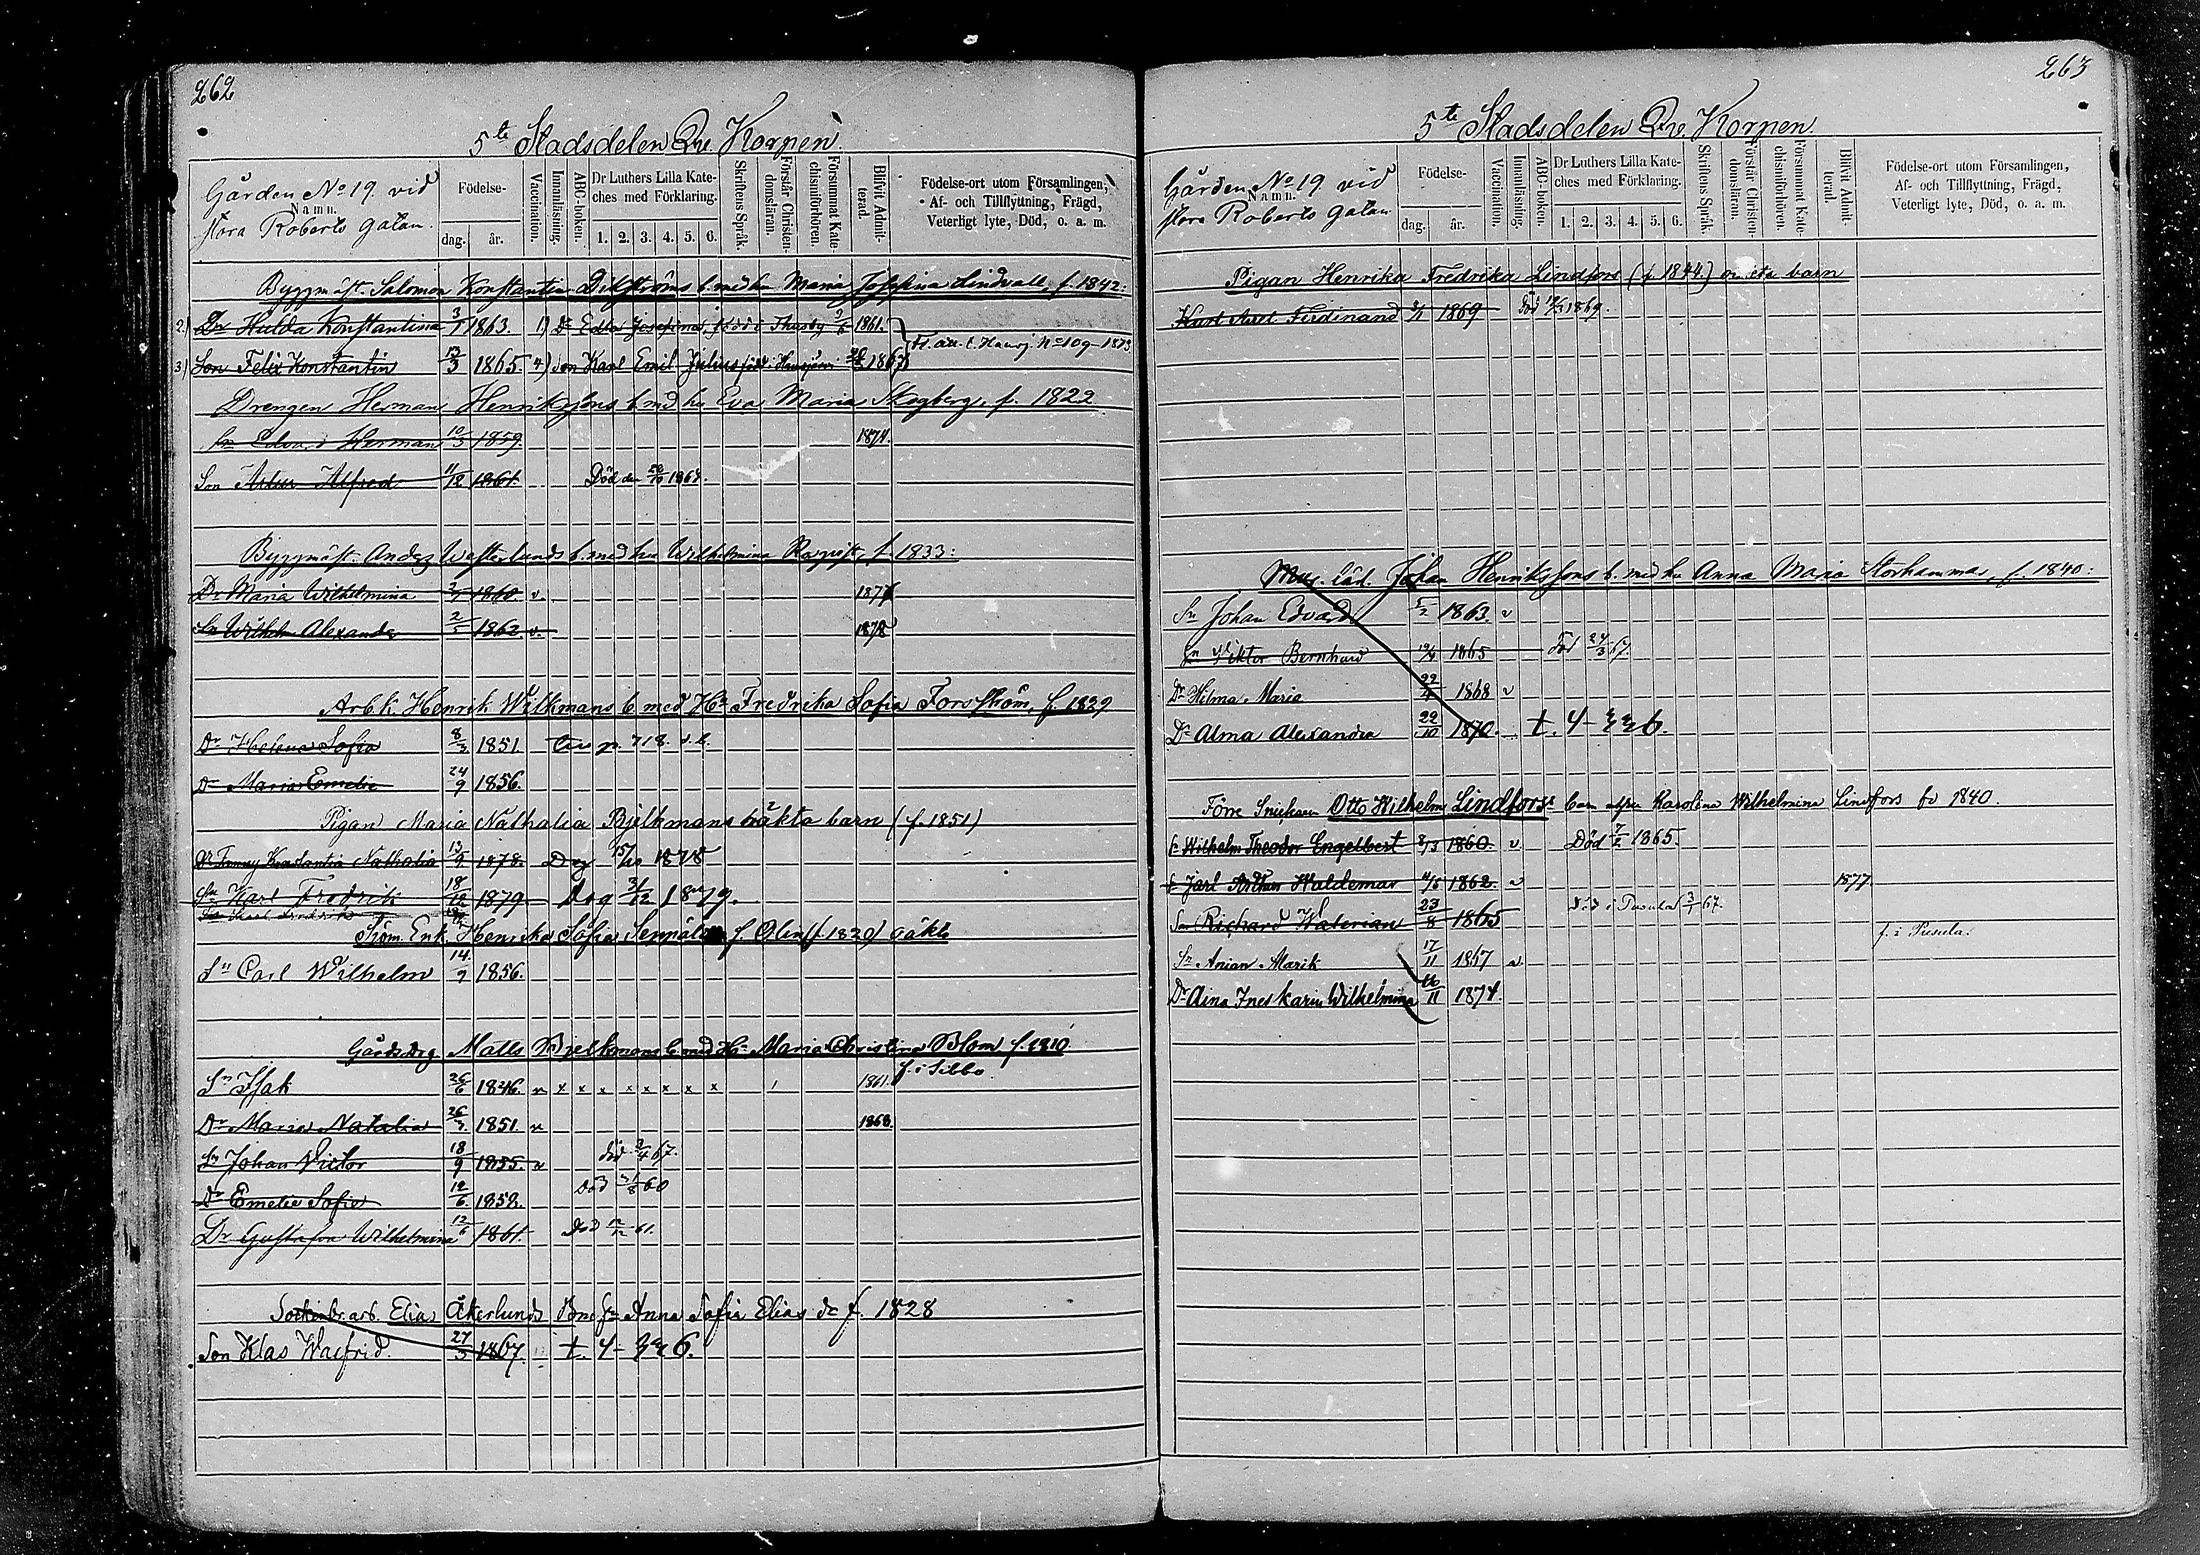 262
5te Stadsdelen Qre. Korpen.
Gården No 19. vid
Namn.
stora Roberts gatan.
Födelse-
dag. år.
Vaccination.
Innanläsning.
ABC-boken.
Dr Luthers Lilla Kate-
ches med Förklaring.
1. 2. 3. 4. 5. 6.
Skriftens Språk.
Förstår Christen-
domsläran.
Försummat Kate-
chismiförhören.
Blifvit Admit-
terad.
Födelse-ort utom Församlingen,
Af- och Tillflyttning, Frägd,
Veterligt lyte, Död, o. a. m.
Byggmäst. Salomon Konstantin Dikströms b. med hu Maria Josefina Lindvall, f. 1842:
2.) Dr Hulda Konstantina 3/1 1863. 1) Dr Edla Josefina, född i Thusby 9/6 1861.
3) Son Felix Konstantin 13/3 1865. 4) Son Karl Emil Julius född i 1867
No 109 - 1873
Drengen Herman Henrikssons b. med hu Eva Maria Skogberg, f. 1822
Sn Edvard Herman 10/3 1859. 1874.
Son Artur Alfred 11/12 1861 Död den 1868.
Byggmäst. Anders Westerlunds b. med hu Wilhelmina f. 1833:
Dr Maria Wilhelmina 1860. v 1877
Sn Wilhelm Alexander 2/5 1862 v. 1878
Arb.k. Henrik Wilkmans b. med Hu Fredrika Sofia Forsström, f. 1829
Dr Helena Sofia 8/3 1851 p. 718.
Dr Maria Emelie 24/9 1856.
Pigan Maria Nathalia Bjelkmans oäkta barn (f. 1851)
Dr Fanny Konstantia Nathalia 13/9 1878. Dog 15/10 1878
Sn Karl Fredrik 18/12 1879. Dog 31/12 1879.
Sn Karl Fredrik
Enk. Henrika Sofia f. Olen (f. 1829) oäkta
Sn Carl Wilhelm 14/9 1856.
Gårdsdrg Matts Bjelkmans b. med Hu Maria Christina Blom f. 1810
f. i Sibbo.
Sn Isak 26/6 1846. v x x x x x x x x 1861.
Dr Maria Natalia 26/7 1851. v 1868
Sn Johan Victor 18/9 1855. v död 2/4 67.
Dr Emelie Sofia 12/6 1858. Död 31/8 60
Dr Gustafva Wilhelmina 12/6 1861. Död 12/12 61.
Elias Åkerlunds Anna Sofia Elias dr f. 1828
Son Klas Walfrid. 27/3 1867. t. 4-
263
5te Stadsdelen Qre. Korpen.
Gården No 19. vid
Namn.
stora Roberts gatan.
Födelse-
dag. år.
Vaccination.
Innanläsning.
ABC-boken.
Dr Luthers Lilla Kate-
ches med Förklaring.
1. 2. 3. 4. 5. 6.
Skriftens Språk.
Förstår Christen-
domsläran.
Försummat Kate-
chismiförhören.
Blifvit Admit-
terad.
Födelse-ort utom Församlingen,
Af- och Tillflyttning, Frägd,
Veterligt lyte, Död, o. a. m.
Pigan Henrika Fredrika Lindfors (f. 1844.) oäkta barn
Kurt Axel Ferdinand 1869 död 1869.
Johan Henrikssons b. med hu Anna Maria Storhammar, f. 1840:
Sn Johan Edvard 5/2 1863. v
Sn Viktor Bernhard 1865 död 24/3 67.
Dr Hilma Maria 1868 v
Dr Alma Alexandra 22/10 1870. t. 4-
Förre Snickaren Otto Wilhelm Lindfors barn Karolina Wilhelmina Lindfors fd 1840.
Sn Wilhelm Theodor Engelbert 1860. v Död 7/2 1865.
Sn Jarl Arthur Waldemar 1862. v 1877
Son Richard Walerian 23/8 1865 död i Pusula 3/1 67.
f. i Pusula.
Sn Anian Marik 17/11 1857 v
Dr Aina Ines Karin Wilhelmina 16/11 1874.